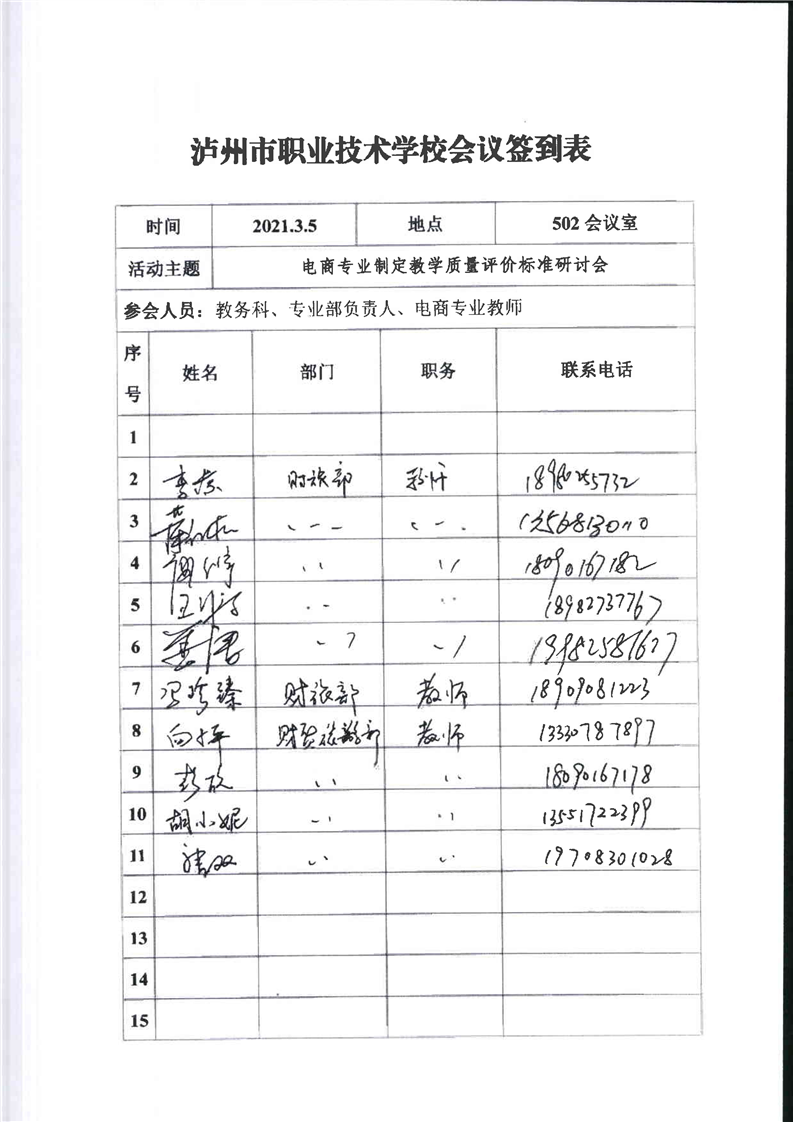 泸州市职业技术学校会议签到表
时间 2021.3.5 地点 502 会议室
活动主题 电商专业制定教学质量评价标准研讨会
参会人员：教务科、专业部负责人、电商专业教师
序号 姓名 部门 职务 联系电话
1
2 财旅部 18980255732
3
4 18090167182
5 18982737767
6 19982581627
7 冯玲臻 财旅部 教师 18909081223
8 向坪 教师 13330787897
9 彭欣 18090167178
10 胡小妮 13551722399
11 19708301028
12
13
14
15